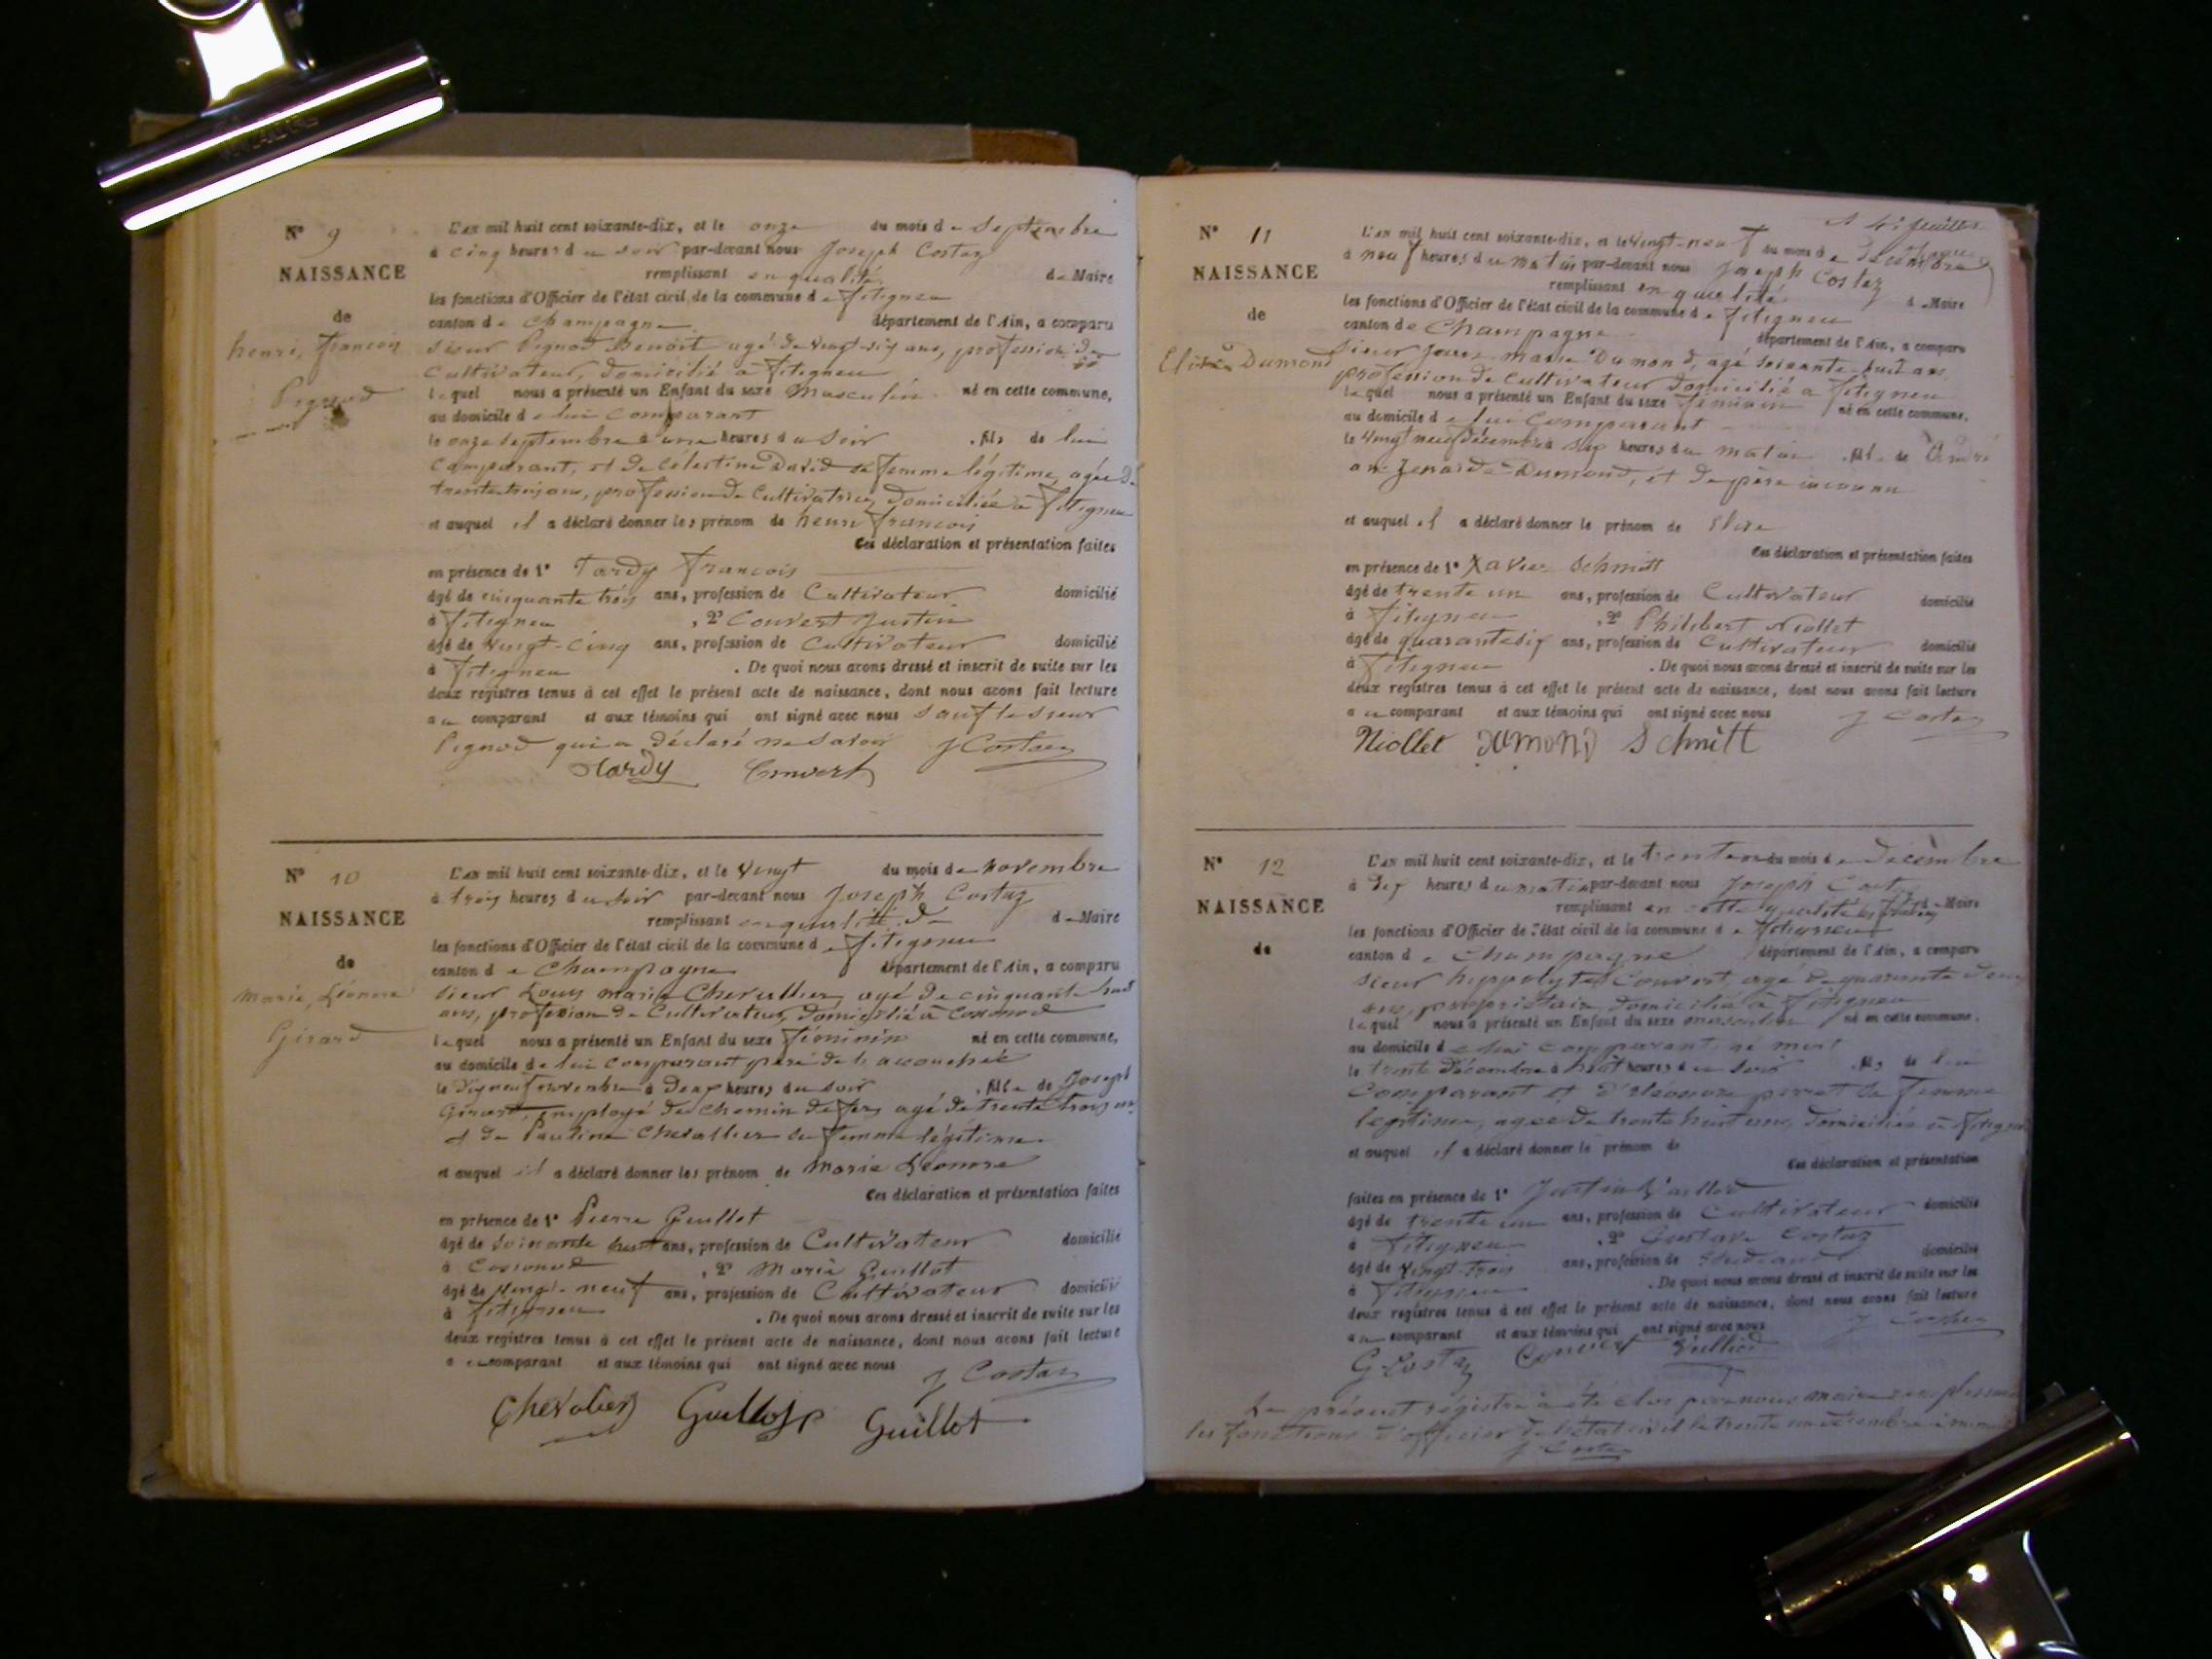 N° 9
NAISSANCE
de
henri, françois
Pignod
L'an mil huit cent soixante-dix, et le onze du mois de Septembre
à cinq heures du soir par-devant nous Joseph Costaz
remplissant en qualité de Maire
les fonctions d'Officier de l'état civil de la commune de fitignieu
canton de Champagne département de l'Ain, a comparu
sieur Pignod Benoit agé de vingt-six ans, profession de
Cultivateur, domicilié à fitignieu
lequel nous a présenté un Enfant du sexe Masculin né en cette commune,
au domicile de lui comparant
le onze septembre à une heures du Soir fils de lui
Comparant, et de célestine David sa femme légitime, agée de
trente trois ans, profession de Cultivatrice, domiciliée à fitignieu
et auquel il a déclaré donner les prénom de henri françois
Ces déclaration et présentation faites
en présence de 1° Tardy françois
âgé de cinquante trois ans, profession de Cultivateur domicilié
à fitignieu , 2° Convert Justin
âgé de vingt-cinq ans, profession de Cultivateur domicilié
à fitignieu . De quoi nous avons dressé et inscrit de suite sur les
deux registres tenus à cet effet le présent acte de naissance, dont nous avons fait lecture
au comparant et aux témoins qui ont signé avec nous sauf le sieur
Pignod qui a déclaré ne savoir J Costaz
Tardy Convert
N° 10
NAISSANCE
de
Marie, Léonore
Girard
L'an mil huit cent soixante-dix, et le vingt du mois de novembre
à trois heures du soir par-devant nous Joseph Costaz
remplissant en qualité de de Maire
les fonctions d'Officier de l'état civil de la commune de fitignieu
canton de Champagne département de l'Ain, a comparu
sieur Louis marie Chevallier, agé de cinquante huit
ans, profession de Cultivateur, domicilié à
lequel nous a présenté un Enfant du sexe féminin né en cette commune,
au domicile de lui comparant père de l'accouchée
le dixneuf novembre à deux heures du soir fille de Joseph
Girard, employé du chemin de fer, agé de trente trois ans
et de Pauline Chevallier sa femme légitime
et auquel il a déclaré donner les prénom de Marie Léonore
Ces déclaration et présentation faites
en présence de 1° Pierre Guillot
âgé de soixante huit ans, profession de Cultivateur domicilié
à , 2° Marie Guillot
âgé de vingt-neuf ans, profession de Cultivateur domicilié
à fitignieu . De quoi nous avons dressé et inscrit de suite sur les
deux registres tenus à cet effet le présent acte de naissance, dont nous avons fait lecture
au comparant et aux témoins qui ont signé avec nous
J Costaz
Chevalier Guillot p Guillot
4e feuillet
N° 11
NAISSANCE
de
Elise Dumond
L'an mil huit cent soixante-dix, et le vingt-neuf du mois de Décembre
à neuf heures du matin par-devant nous Joseph Costaz
remplissant en qualité de Maire
les fonctions d'Officier de l'état civil de la commune de fitignieu
canton de Champagne département de l'Ain, a comparu
sieur marie Dumond, agé soixante-huit ans
profession de Cultivateur domicilié à fitignieu
lequel nous a présenté un Enfant du sexe féminin né en cette commune,
au domicile de lui Comparant
le vingt neuf décembre à six heures du matin fille de
Dumond, et de père inconnu
et auquel il a déclaré donner le prénom de Elise
Ces déclaration et présentation faites
en présence de 1° Xavier Schmitt
âgé de trente un ans, profession de Cultivateur domicilié
à fitignieu , 2° Philibert Niollet
âgé de quarante six ans, profession de Cultivateur domicilié
à fitignieu . De quoi nous avons dressé et inscrit de suite sur les
deux registres tenus à cet effet le présent acte de naissance, dont nous avons fait lecture
au comparant et aux témoins qui ont signé avec nous J Costaz
Niollet Dumond Schmitt
N° 12
NAISSANCE
de
L'an mil huit cent soixante-dix, et le trente un du mois de Décembre
à dix heures du matin par-devant nous Joseph Costaz
remplissant en cette qualité de Maire
les fonctions d'Officier de l'état civil de la commune de fitignieu
canton de Champagne département de l'Ain, a comparu
sieur hippolyte Convert, agé de quarante deux
ans, propriétaire domicilié à fitignieu
lequel nous a présenté un Enfant du sexe masculin né en cette commune,
au domicile de lui comparant, né mort
le trente décembre à huit heures du soir fils de lui
Comparant et d'éléonore perret sa femme
legitime, agée de trente huit ans, domiciliée à fitignieu
et auquel il a déclaré donner le prénom de
Ces déclaration et présentation
faites en présence de 1° Justin
âgé de trente un ans, profession de Cultivateur domicilié
à fitignieu , 2° Gustave Costaz
âgé de vingt-trois ans, profession de domicilié
à fitignieu . De quoi nous avons dressé et inscrit de suite sur les
deux registres tenus à cet effet le présent acte de naissance, dont nous avons fait lecture
au comparant et aux témoins qui ont signé avec nous J Costaz
G Costaz Convert
Le présent régistre à été clos par nous maire remplissant
les fonctions d'officier de l'état civil le trente un décembre
J Costaz